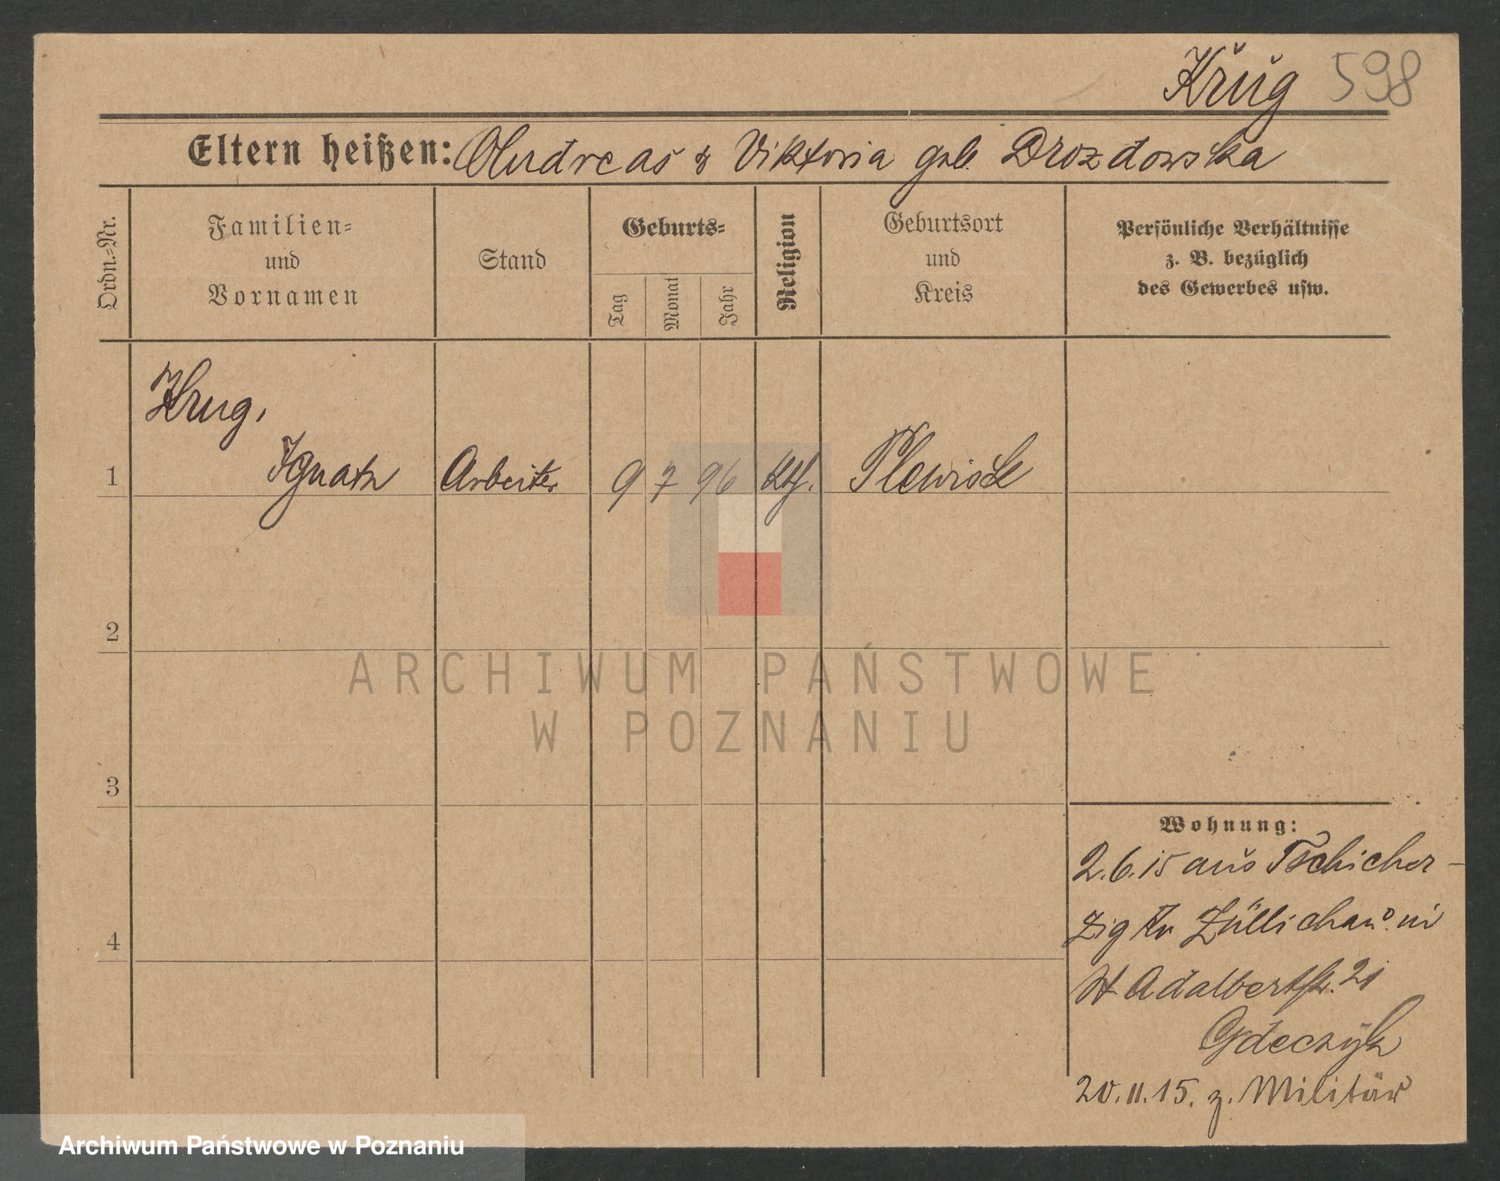 Krug 598
Eltern heißen: Andreas & Viktoria geb. Drozdowska
Ordn.-Nr.
Familien-
und
Vornamen
Stand
Geburts-
Tag
Monat
Jahr
Religion
Geburtsort
und
Kreis
Persönliche Verhältnisse
z. B. bezüglich
des Gewerbes usw.
Krug,
1 Ignatz Arbeiter 9 7 96 kth. Plewisk
2
ARCHIWUM PAŃSTWOWE
W POZNANIU
3
Wohnung:
2.6.15 aus Tschicher-
zig Kr Züllichau in
St Adalbertstr. 21
Gdeczyk
4
20.11.15. z. Militär
Archiwum Państwowe w Poznaniu